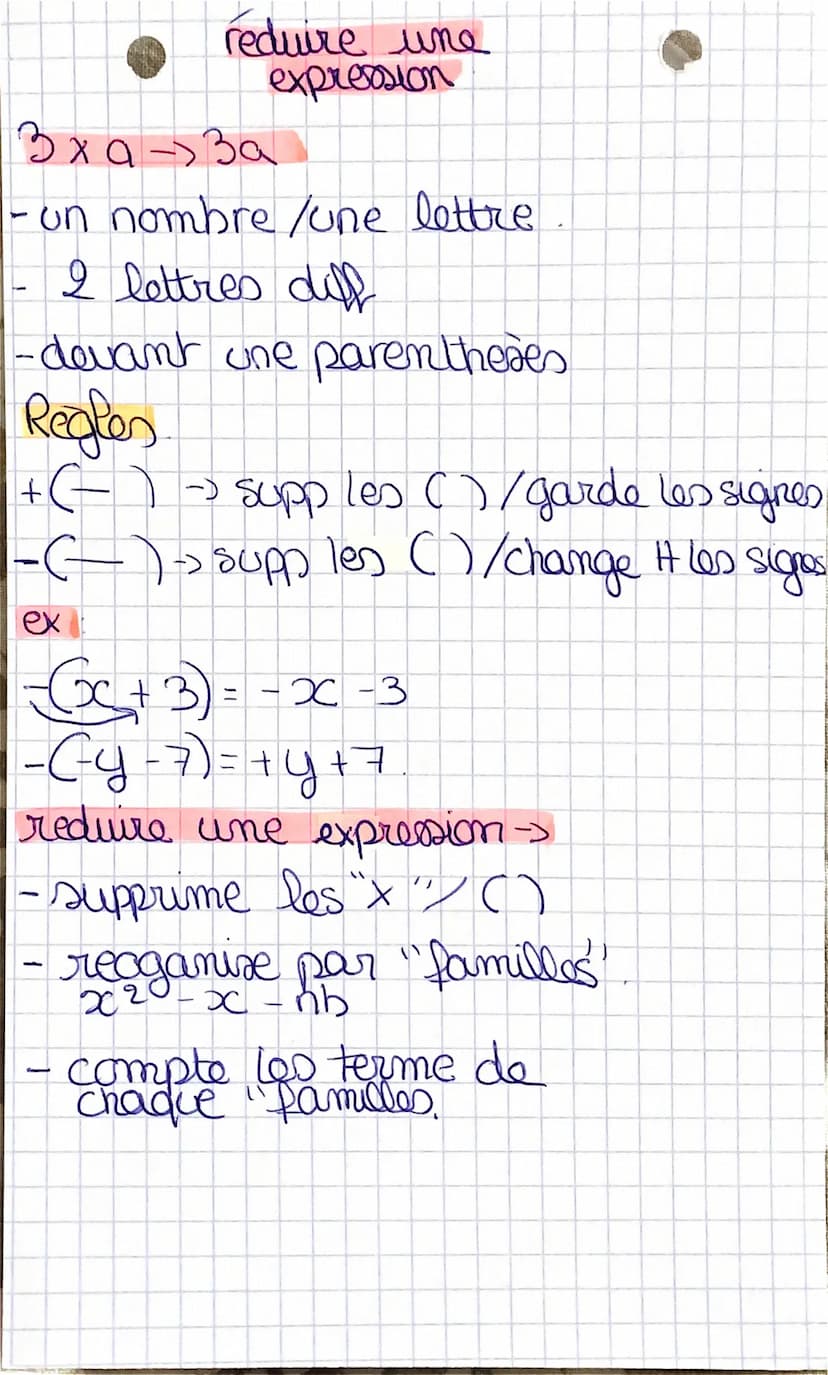 reduire une
expression
3 x a -> 3a
- un nombre / une lettre.
- 2 lettres diff
- devant une parenthesès
Regles
+( — ) -> supp les ( ) / garde les signes
-( — ) -> supp les ( ) / change tt les signes
ex :
-(x + 3) = - x - 3
-(-y - 7) = + y + 7.
reduire une expression ->
- supprime les "x" / ( )
- reoganise par "familles".
x² - x - nb
- compte les terme de
chaque "familles.